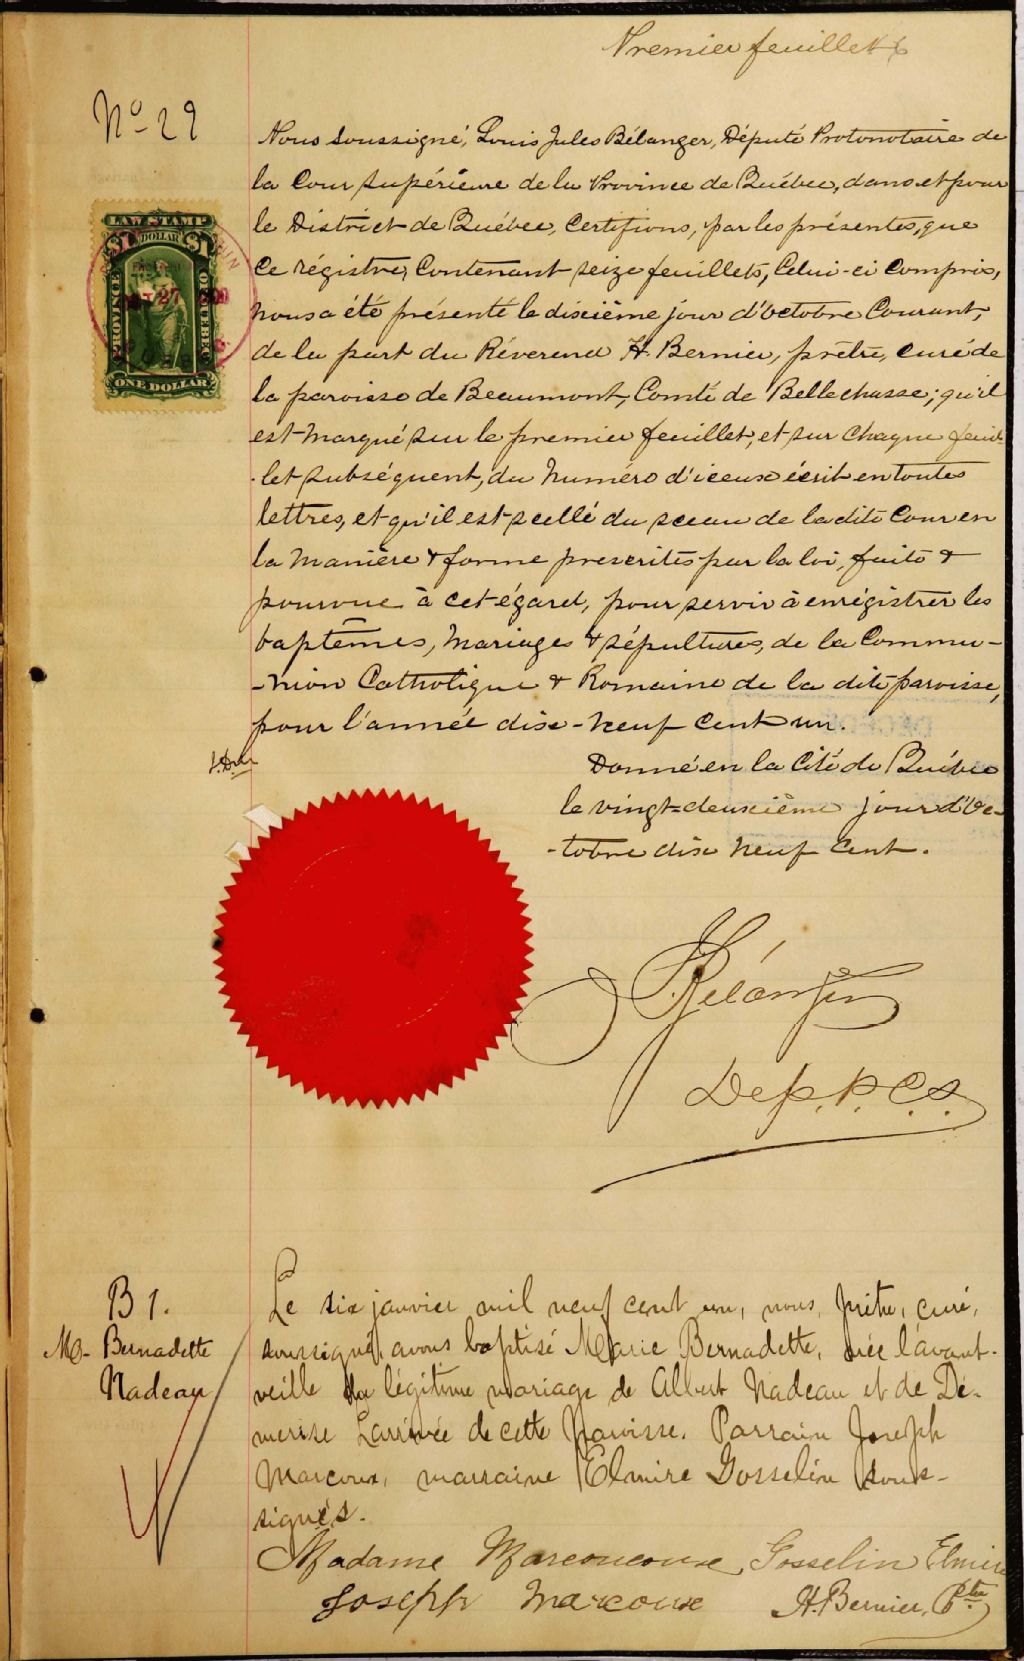 Premier feuillet
No 29
Nous soussigné, Louis Jules Bélanger, Député Protonotaire de
la Cour Supérieure de la Province de Québec, dans et pour
le District de Québec, Certifions, par les présentes, que
Ce régistre, Contenant seize feuillets, Celui-ci Compris,
nous a été présenté le dixième jour d'octobre Courant,
de la part du Révérend H. Bernier, prêtre, curé de
la paroisse de Beaumont, Comté de Bellechasse; qu'il
est marqué sur le premier feuillet, et sur chaque feuil-
-let subséquent, du numéro d'iceux écrit en toutes
lettres, et qu'il est scellé du sceau de la dite Cour en
la manière & forme prescrites par la loi, faite &
pourvue à cet égard, pour servir à enrégistrer les
baptêmes, mariages & sépultures, de la Commu-
-nion Catholique & Romaine de la dite paroisse,
pour l'année dix-neuf cent un.
Donné en la Cité de Québec
le vingt-deuxième jour d'Oc-
-tobre dix neuf Cent.
LAW STAMP
$1 DOLLAR $1
PROVINCE QUEBEC
OCT 27
ONE DOLLAR
Bélanger
Dep. P. C. S.
B 1.
M- Bernadette
Nadeau
Le six janvier mil neuf cent un, nous, prêtre, curé,
soussigné, avons baptisé Marie Bernadette, née l'avant-
veille du légitime mariage de Albert Nadeau et de Dé-
merise Larrivée de cette Paroisse. Parrain Joseph
Marcoux, marraine Elmire Gosselin sous-
signés.
Madame Marcoucoux Gosselin Elmire
Joseph Marcoux H. Bernier, Ptre